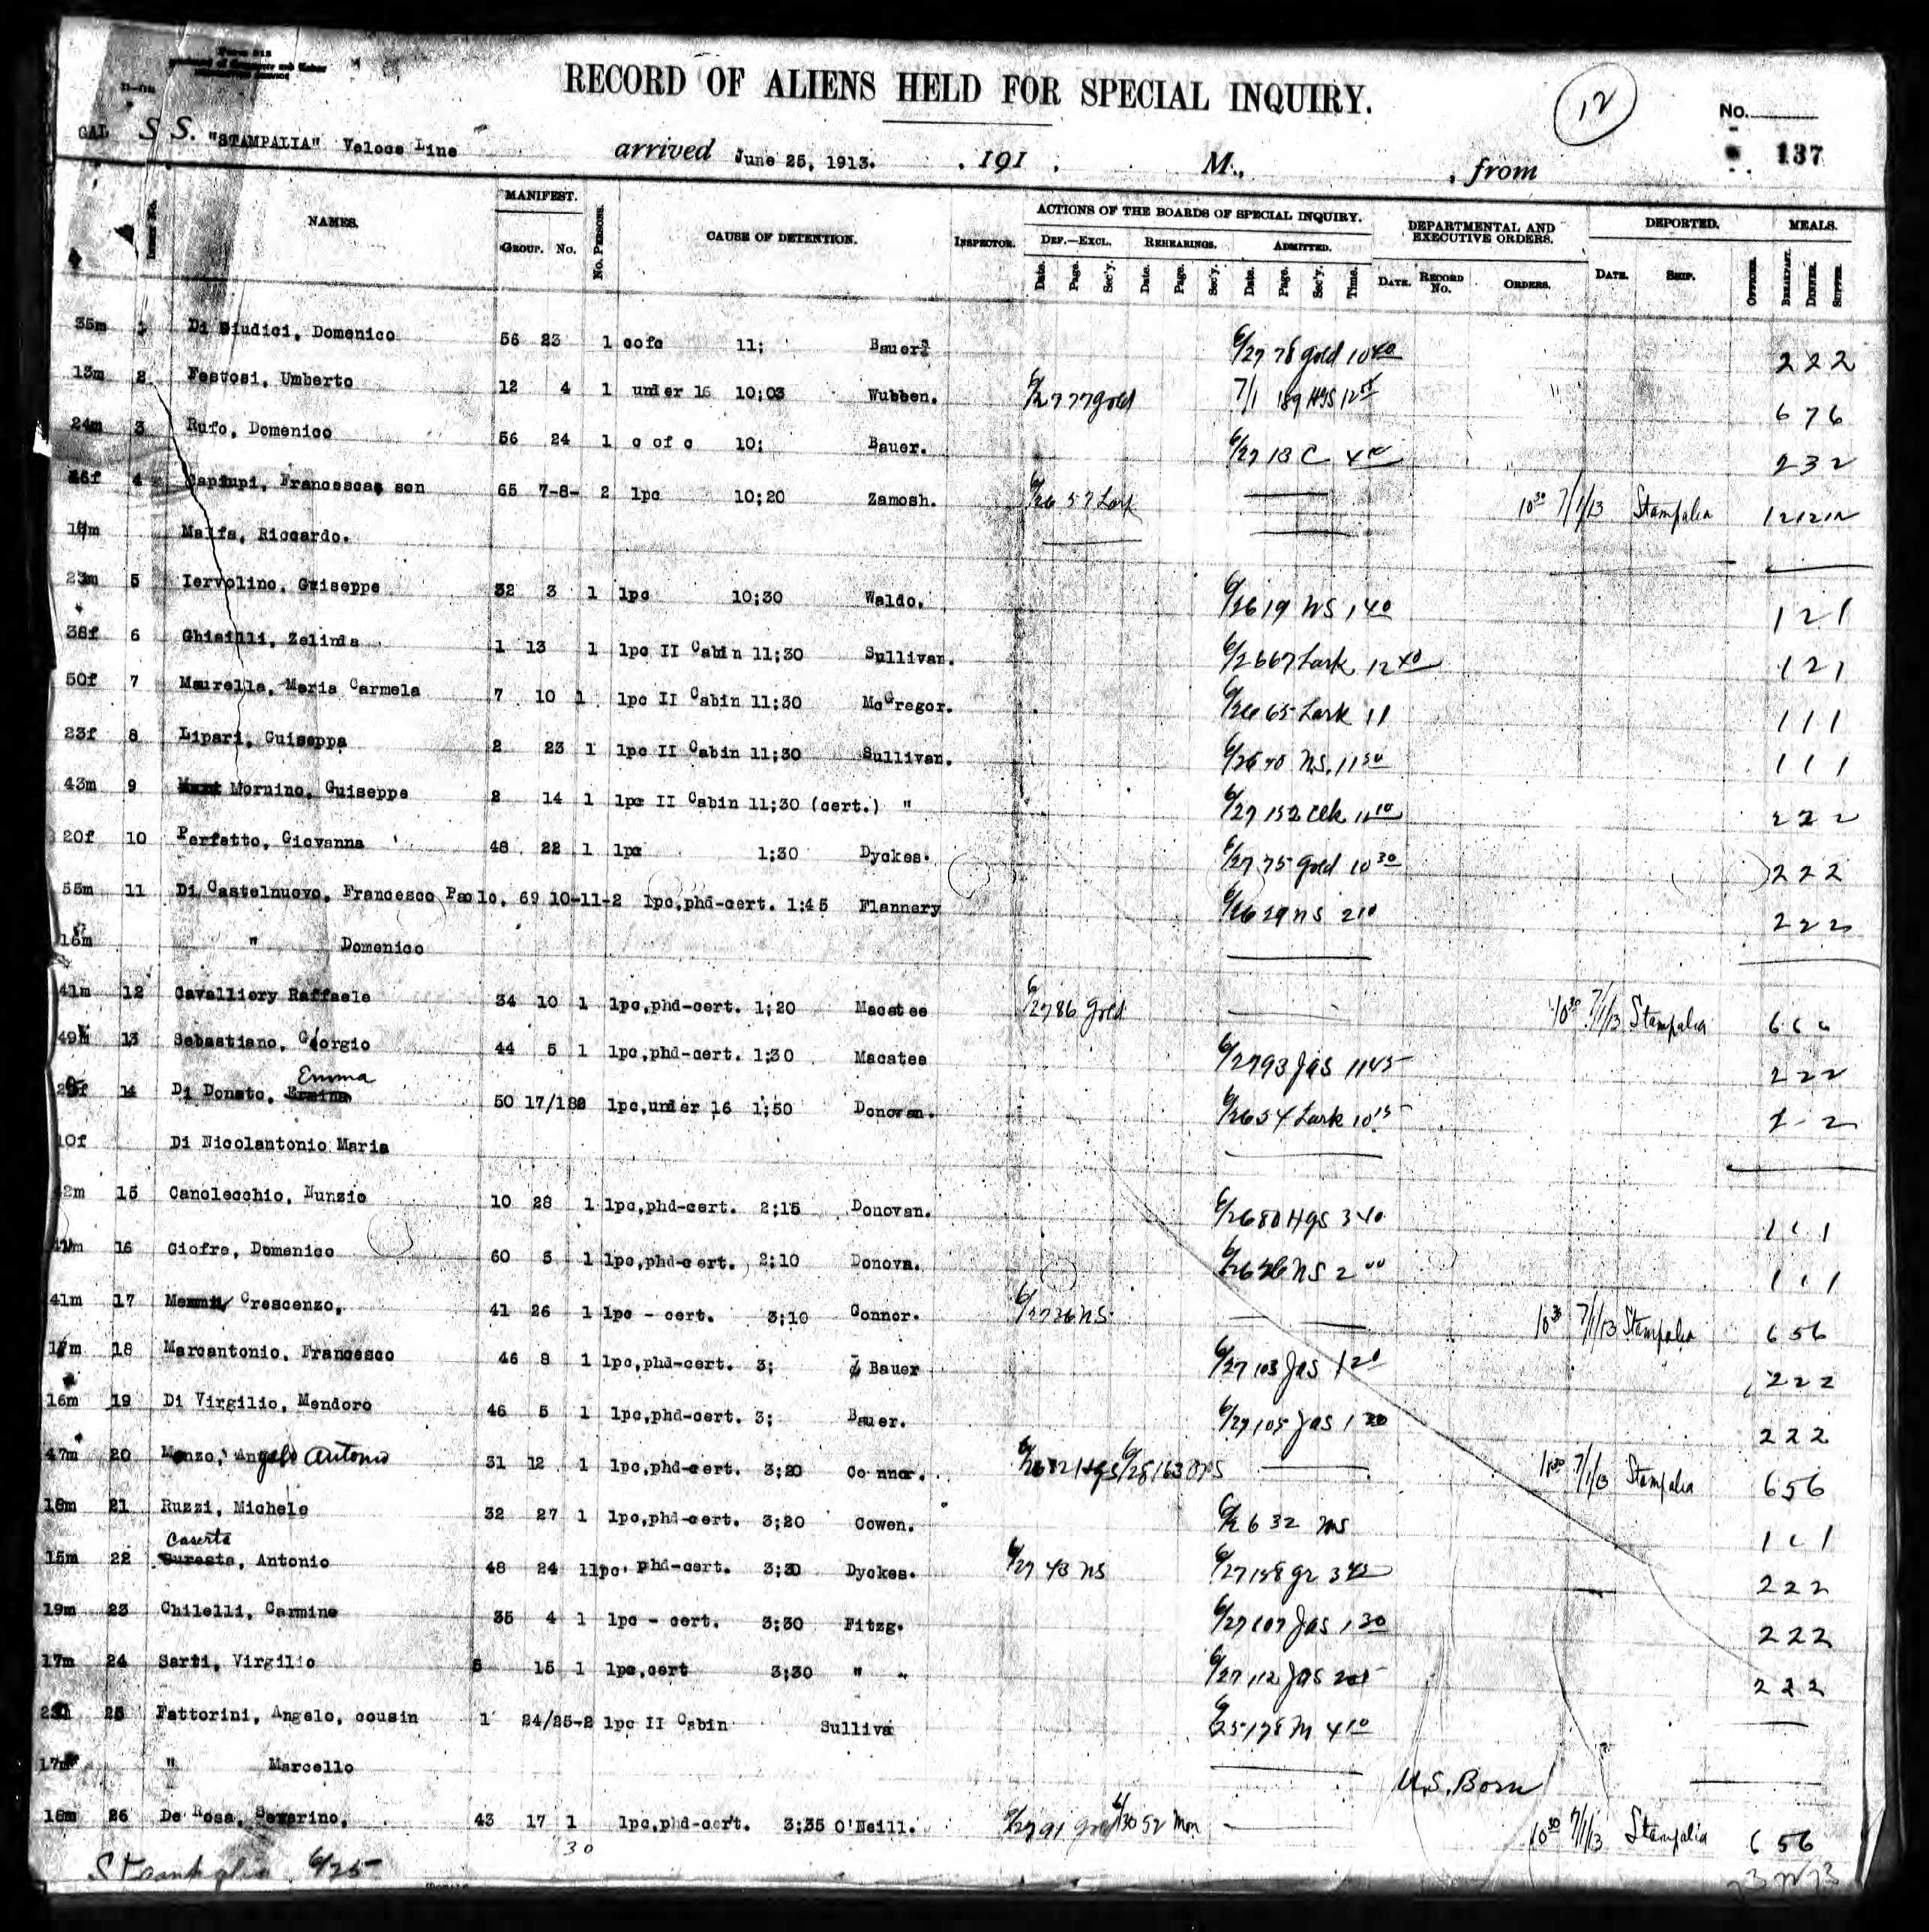 Form 618
RECORD OF ALIENS HELD FOR SPECIAL INQUIRY.
12
No.
137
S S. "STAMPALIA" Veloce Line arrived June 25, 1913. , 191 . M., , from
NAMES. MANIFEST. GROUP. No. No. PERSONS. CAUSE OF DETENTION. INSPECTOR. ACTIONS OF THE BOARDS OF SPECIAL INQUIRY. DEPARTMENTAL AND EXECUTIVE ORDERS. DEPORTED. MEALS.
DEF.—EXCL. REHEARINGS. ADMITTED.
Date. Page. Sec'y. Date. Page. Sec'y. Date. Page. Sec'y. Time. DATE. RECORD No. ORDERS. DATE. SHIP. OFFICER. BREAKFAST. DINNER. SUPPER.
35m Di Giudici, Domenico 56 23 1 cofc 11; Bauer 6/27 78 gold 10 40 2 2 2
13m 2 Festosi, Umberto 12 4 1 under 16 10;03 Wubben. 6/27 77 gold 7/1 189 Hgs 6 7 6
24m 3 Rufo, Domenico 56 24 1 c of c 10; Bauer. 6/27 13 C 2 3 2
4 Capiupi, Francesca son 65 7-8- 2 lpc 10;20 Zamosh. 6/26 57 Lark 10 30 7/1/13 Stampalia 12 12 12
Malfa, Riccardo.
23m 5 Iervolino, Guiseppe 32 3 1 lpc 10;30 Waldo. 6/26 19 NS 1 40 1 2 1
38f 6 Ghisilli, Zelinda 1 13 1 lpc II Cabin 11;30 Sullivan. 6/26 67 Lark 12 40 1 2 1
50f 7 Maurella, Maria Carmela 7 10 1 lpc II Cabin 11;30 McGregor. 6/26 65 Lark 11 1 1 1
23f 8 Lipari, Guiseppa 2 23 1 lpc II Cabin 11;30 Sullivan. 6/26 70 NS. 11 50 1 1 1
43m 9 Mornino, Guiseppe 2 14 1 lpc II Cabin 11;30 (cert.) " 6/27 152 Clk 11 10 2 2 2
20f 10 Perfetto, Giovanna 48 22 1 lpc 1;30 Dyckes. 6/27 75 gold 10 30 2 2 2
55m 11 Di Castelnuovo, Francesco Paolo, 69 10-11-2 lpc,phd-cert. 1;45 Flannery 6/26 29 NS 2 10 2 2 2
16m " Domenico
41m 12 Cavalliery Raffaele 34 10 1 lpc,phd-cert. 1;20 Macatee 6/27 86 gold 10 30 7/1/13 Stampalia 6 6 6
13 Sebastiano, Giorgio 44 5 1 lpc,phd-cert. 1;30 Macatee 6/27 93 Jas 11 45 2 2 2
Emma
14 Di Donato, 50 17/18 2 lpc,under 16 1;50 Donovan. 6/26 54 Lark 10 15 2 - 2
10f Di Nicolantonio Maria
42m 15 Canolecchio, Nunzio 10 28 1 lpc,phd-cert. 2;15 Donovan. 6/26 80 Hgs 3 40 1 1 1
16 Giofre, Domenico 60 5 1 lpc,phd-cert. 2;10 Donova. 6/26 26 NS 2 00 1 1 1
41m 17 Crescenzo, 41 26 1 lpc - cert. 3;10 Connor. 6/27 36 NS. 10 30 7/1/13 Stampalia 6 5 6
17m 18 Marcantonio, Francesco 46 8 1 lpc,phd-cert. 3; Bauer 6/27 103 Jas 1 20 2 2 2
16m 19 Di Virgilio, Mendoro 46 5 1 lpc,phd-cert. 3; Bauer. 6/27 105 Jas 1 20 2 2 2
47m 20 Manzo, Angelo Antonio 31 12 1 lpc,phd-cert. 3;20 Connor. 6/26 82 Hgs 6/28 163 10 30 7/1/13 Stampalia 6 5 6
18m 21 Ruzzi, Michele 32 27 1 lpc,phd-cert. 3;20 Cowen. 6/26 32 NS 1 1 1
Caserta
15m 22 Antonio 48 24 1 lpc, phd-cert. 3;30 Dyckes. 6/27 43 NS 6/27 158 gr 3 45 2 2 2
19m 23 Chilelli, Carmine 35 4 1 lpc - cert. 3;30 Fitzg. 6/27 107 Jas 1 30 2 2 2
17m 24 Sarti, Virgilio 5 15 1 lpc,cert 3;30 " " 6/27 112 Jas 2 2 2
25 Fattorini, Angelo, cousin 1 24/25-2 lpc II Cabin Sulliva 6/25 178 M 4 10
17m " Marcello U.S. Born
18m 26 De Rosa, Severino, 43 17 1 lpc,phd-cert. 3;35 O'Neill. 6/27 91 gold 6/30 52 Mon 10 30 7/1/13 Stampalia 6 5 6
30
Stampalia 6/25